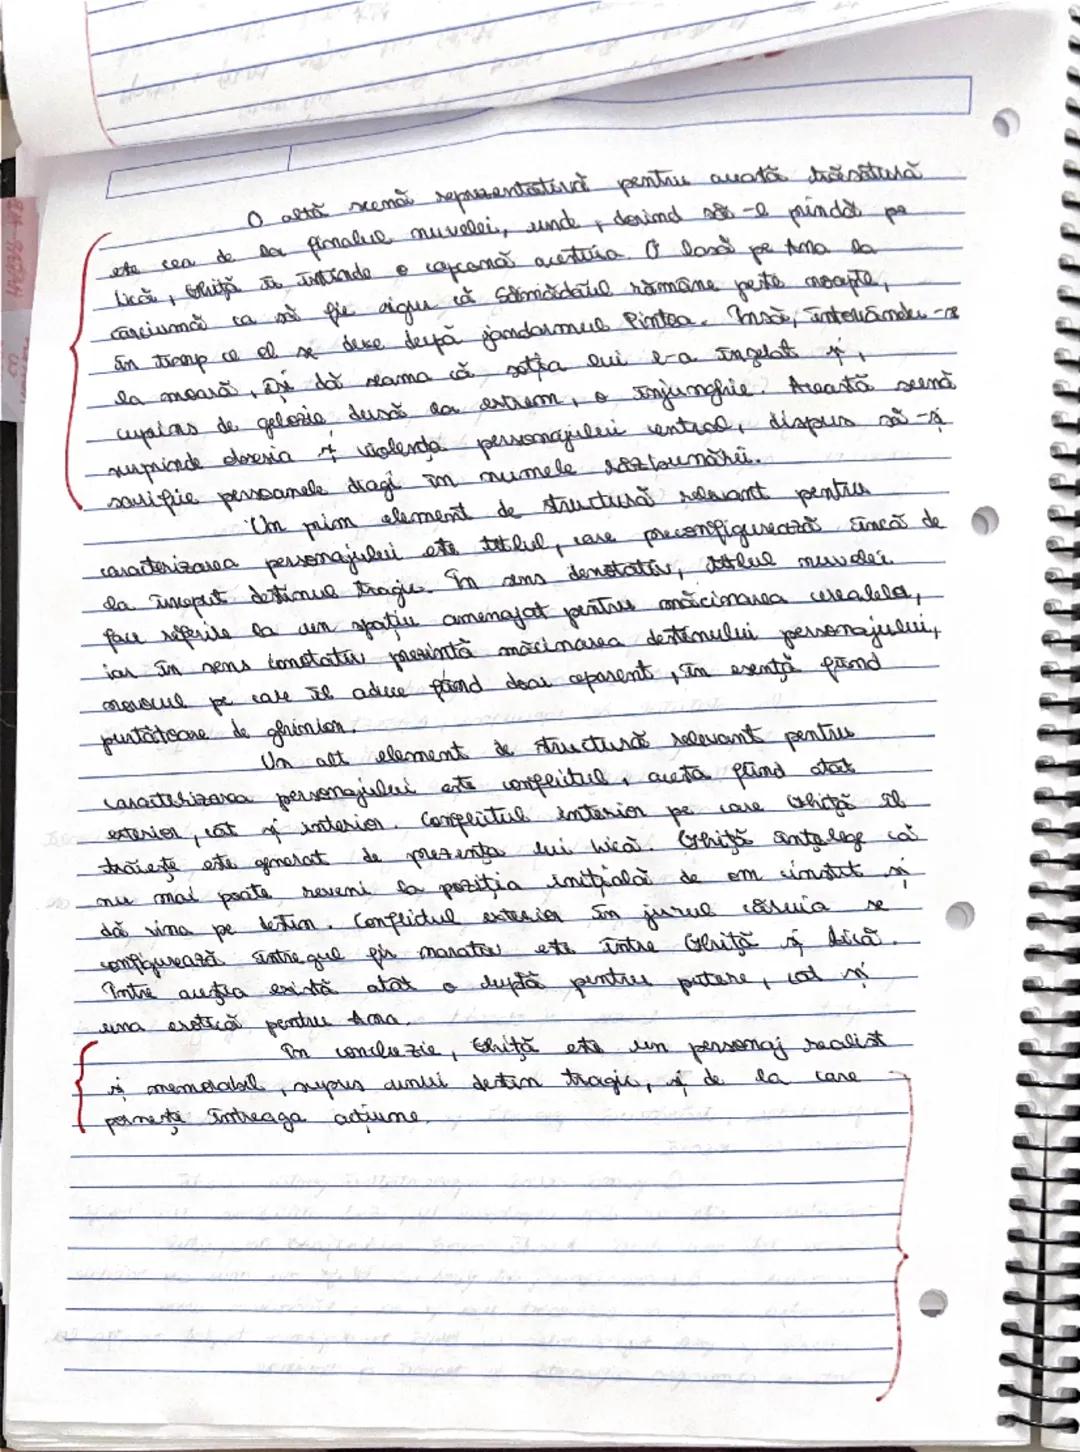 O altă scenă reprezentativă pentru această trăsătură
este cea de la finalul nuvelei, unde, dorind să-l prindă pe
Lică, Ghiță îi întinde o capcană acestuia. O lasă pe Ana la
cârciumă ca să fie sigur că Sămădăul rămâne peste noapte,
în timp ce el se duce după jandarmul Pintea. Însă, întorcându-se
la moară, își dă seama că soția lui l-a înșelat și,
cuprins de gelozie dusă la extrem, o înjunghie. Această scenă
surprinde obsesia și violența personajului central, dispus să-și
sacrifice persoanele dragi în numele răzbunării.
Un prim element de structură relevant pentru
caracterizarea personajului este titlul, care preconfigurează încă de
la început destinul tragic. În sens denotativ, titlul nuvelei
face referire la un spațiu amenajat pentru măcinarea cerealelor,
iar în sens conotativ prezintă măcinarea destinului personajului,
norocul pe care îl aduce fiind doar aparent, în esență fiind
purtătoare de ghinion.
Un alt element de structură relevant pentru
caracterizarea personajului este conflictul, acesta fiind atat
exterior, cât și interior. Conflictul interior pe care Ghiță îl
trăiește este generat de prezența lui Lică. Ghiță înțelege că
nu mai poate reveni la poziția inițială de om cinstit și
dă vina pe destin. Conflictul exterior în jurul căruia se
configurează întregul fir narativ este între Ghiță și Lică.
Între aceștia există atat o luptă pentru putere, cât și
una erotică pentru Ana.
În concluzie, Ghiță este un personaj realist
și memorabil, supus unui destin tragic, și de la care
pornește întreaga acțiune.